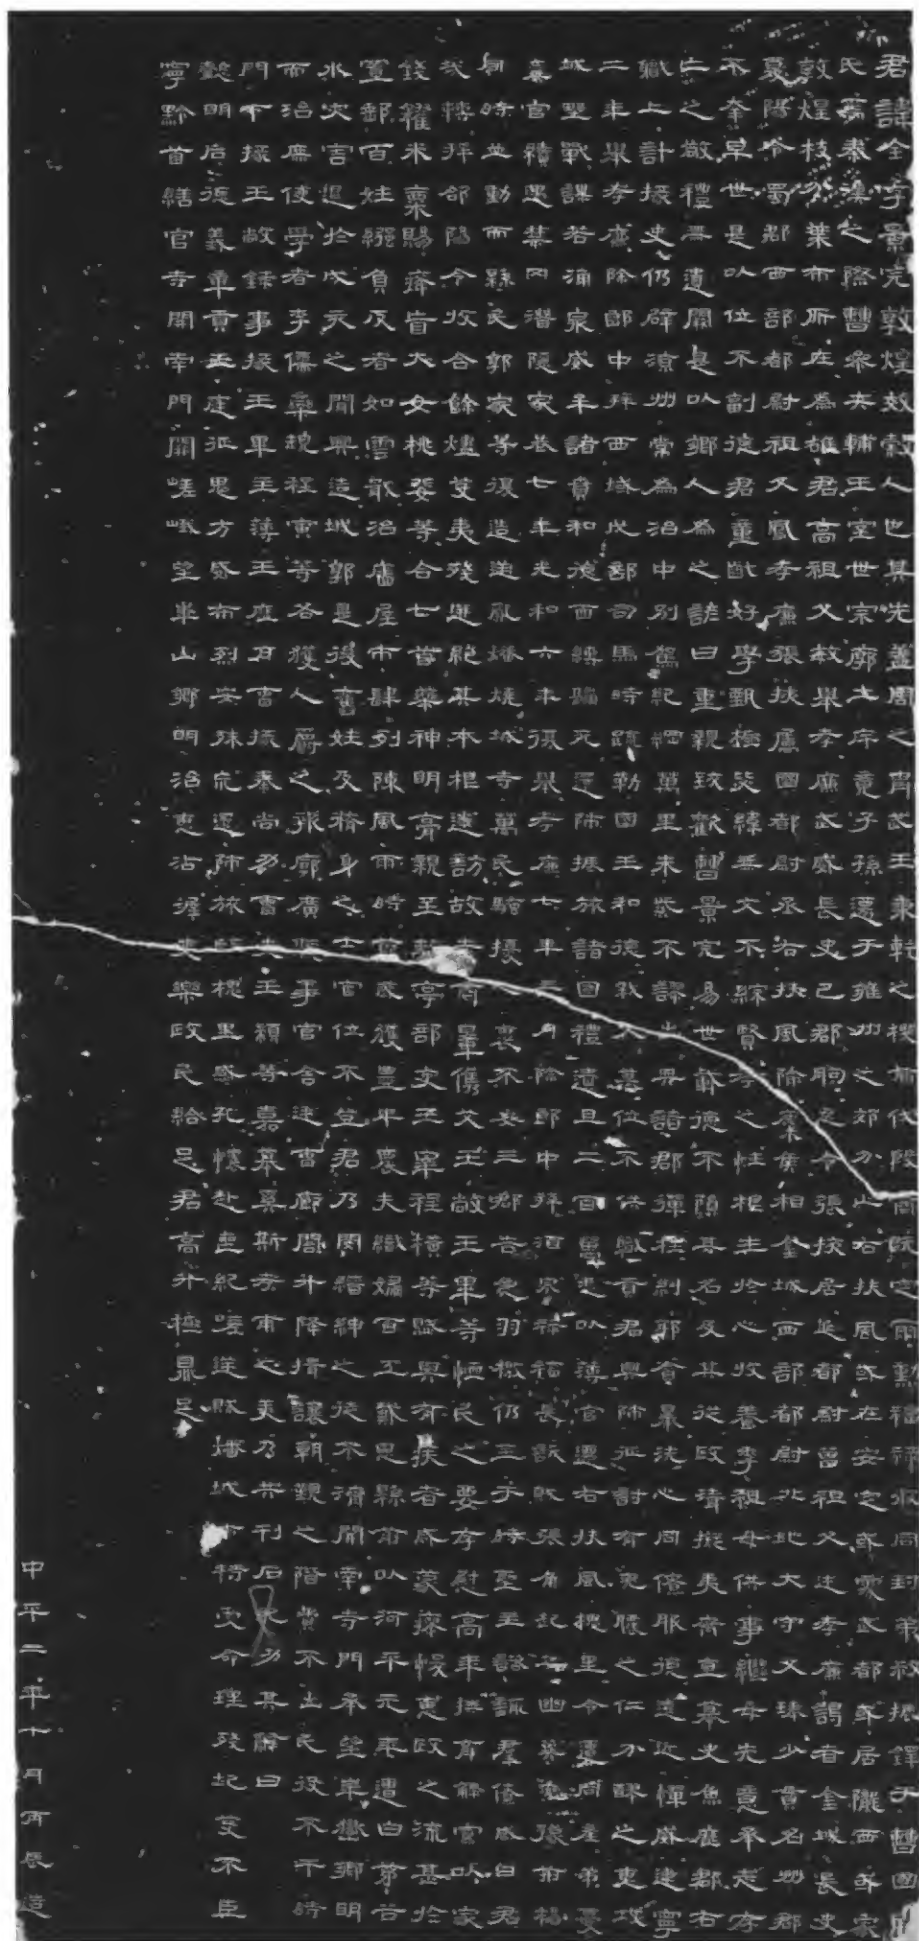 君諱全字景完敦煌效穀人也其先蓋周之胄武王秉乾之機翦伐殷商既定爾勳福祿攸同封弟叔振鐸于曹國因
氏焉秦漢之際曹參夾輔王室世宗廓土斥竟子孫遷于雍州之郊分止右扶風或在安定或處武都或居隴西或家
敦煌枝分葉布所在為雄君高祖父敏舉孝廉武威長史巴郡朐忍令張掖居延都尉曾祖父述孝廉謁者金城長史
夏陽令蜀郡西部都尉祖父鳳孝廉張掖屬國都尉丞右扶風隃麋侯相金城西部都尉北地大守父琫少貫名州郡
不幸早世是以位不副德君童齔好學甄極毖緯無文不綜賢孝之性根生於心收養季祖母供事繼母先意承志存
亡之敬禮無遺闕是以鄉人為之諺曰重親致歡曹景完易世載德不隕其名及其從政清擬夷齊直慕史魚歷郡右
職上計掾史仍辟涼州常為治中別駕紀綱萬里朱紫不謬出典諸郡彈枉糾邪貪暴洗心同僚服德遠近憚威建寧
二年舉孝廉除郎中拜西域戊部司馬時疏勒國王和德弒父篡位不供職貢君興師征討有吮膿之仁分醪之惠攻
城野戰謀若涌泉威牟諸賁和德面縛歸死還師振旅諸國禮遺且二百萬悉以簿官遷右扶風槐里令遭同產弟憂
棄官續遇禁冈潛隱家巷七年光和六年復舉孝廉七年三月除郎中拜酒泉祿福長訞賊張角起兵幽冀兗豫荊楊
同時並動而縣民郭家等復造逆亂燔燒城寺萬民騷擾人裹不安三郡告急羽檄仍至于時聖主諮諏群僚咸曰君
哉轉拜郃陽令收合餘燼芟夷殘迸絕其本根遂訪故老商量儁艾王敞王畢等恤民之要存慰高年撫育鰥寡以家
錢糴米粟賜癃盲大女桃婓等合七首藥神明膏親至離亭部吏王宰程橫等賦與有疾者咸蒙瘳悛惠政之流甚於
置郵百姓繈負反者如雲戢治廧屋市肆列陳風雨時節歲獲豐年農夫織婦百工戴恩縣前以河平元年遭白茅谷
水災害退於戊亥之間興造城郭是後舊姓及修身之士官位不登君乃閔縉紳之徒不濟開南寺門承望華嶽鄉明
而治庶使學者李儒欒規程寅等各獲人爵之報廓廣聽事官舍廷曹廊閤升降揖讓朝覲之階費不出民役不干時
門下掾王敞錄事掾王畢主簿王歷戶曹掾秦尚功曹史王顓等嘉慕奚斯考甫之美乃共刊石紀功其辭曰
懿明后德義章貢王庭征鬼方威布烈安殊荒還師旅臨槐里感孔懷赴喪紀嗟逆賊燔城市特受命理殘圮芟不臣
寧黔首繕官寺開南門闕嵯峨望華山鄉明治惠沾渥吏樂政民給足君高升極鼎足
中平二年十月丙辰造